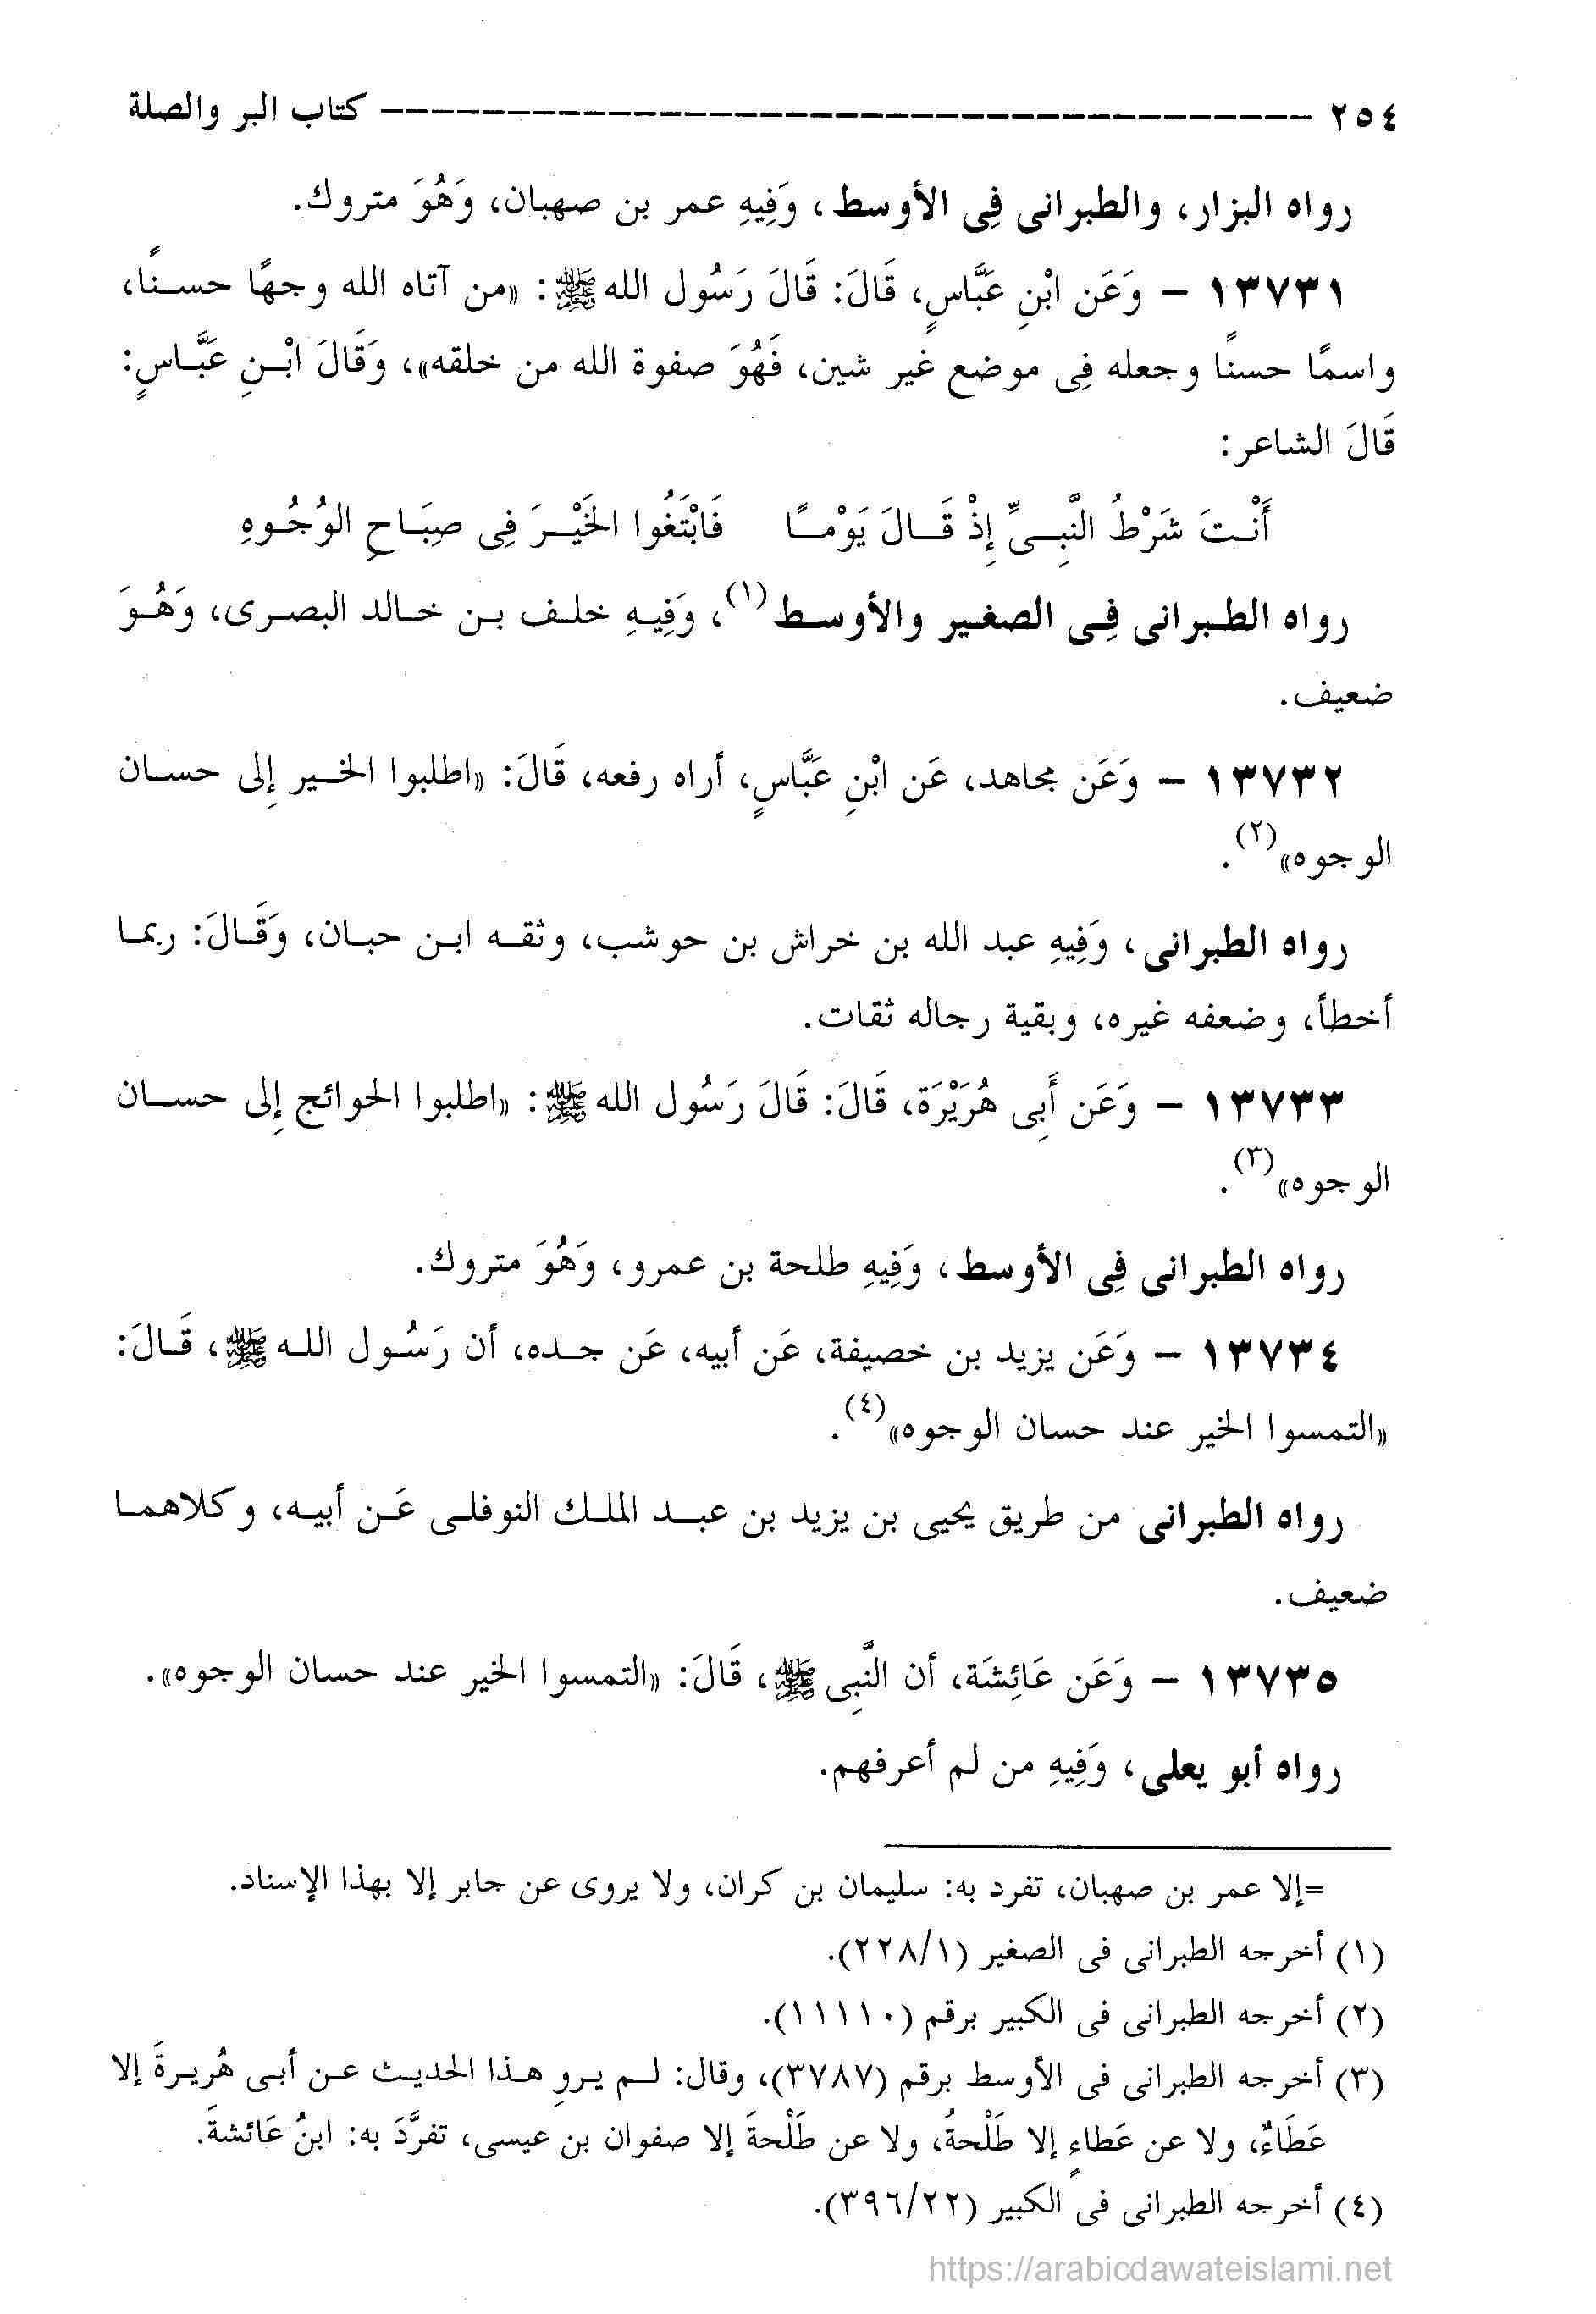 ٢٥٤ ------------------------------------- كتاب البر والصلة
رواه البزار، والطبرانى فِى الأوسط، وَفِيهِ عمر بن صهبان، وَهُوَ متروك.
١٣٧٣١ – وَعَن ابْنِ عَبَّاسٍ، قَالَ: قَالَ رَسُول الله ﷺ: «من آتاه الله وجهًا حسنًا،
واسمًا حسنًا وجعله فِى موضع غير شين، فَهُوَ صفوة الله من خلقه»، وَقَالَ ابْنِ عَبَّاسٍ:
قَالَ الشاعر:
أَنْتَ شَرْطُ النَّبِىِّ إِذْ قَالَ يَوْمًا فَابْتَغُوا الخَيْرَ فِى صِبَاحِ الوُجُوهِ
رواه الطبرانى فِى الصغير والأوسط(١)، وَفِيهِ خلف بن خالد البصرى، وَهُوَ
ضعيف.
١٣٧٣٢ – وَعَن مجاهد، عَن ابْنِ عَبَّاسٍ، أراه رفعه، قَالَ: «اطلبوا الخير إِلى حسان
الوجوه»(٢).
رواه الطبرانى، وَفِيهِ عبد الله بن خراش بن حوشب، وثقه ابن حبان، وَقَالَ: ربما
أخطأ، وضعفه غيره، وبقية رجاله ثقات.
١٣٧٣٣ – وَعَن أَبِى هُرَيْرَة، قَالَ: قَالَ رَسُول الله ﷺ: «اطلبوا الحوائج إِلى حسان
الوجوه»(٣).
رواه الطبرانى فِى الأوسط، وَفِيهِ طلحة بن عمرو، وَهُوَ متروك.
١٣٧٣٤ – وَعَن يزيد بن خصيفة، عَن أبيه، عَن جده، أن رَسُول الله ﷺ، قَالَ:
«التمسوا الخير عند حسان الوجوه»(٤).
رواه الطبرانى من طريق يحيى بن يزيد بن عبد الملك النوفلى عَن أبيه، وكلاهما
ضعيف.
١٣٧٣٥ – وَعَن عَائِشَة، أن النَّبِى ﷺ، قَالَ: «التمسوا الخير عند حسان الوجوه».
رواه أبو يعلى، وَفِيهِ من لم أعرفهم.
=إلا عمر بن صهبان، تفرد به: سليمان بن كران، ولا يروى عن جابر إلا بهذا الإسناد.
(١) أخرجه الطبرانى فى الصغير (٢٢٨/١).
(٢) أخرجه الطبرانى فى الكبير برقم (١١١١٠).
(٣) أخرجه الطبرانى فى الأوسط برقم (٣٧٨٧)، وقال: لم يروِ هذا الحديث عن أبى هُريرةَ إلا
عَطَاءٌ، ولا عن عَطاءٍ إلا طَلْحةُ، ولا عن طَلْحةَ إلا صفوان بن عيسى، تفرَّدَ به: ابنُ عَائشةَ.
(٤) أخرجه الطبرانى فى الكبير (٣٩٦/٢٢).
https://arabicdawateislami.net